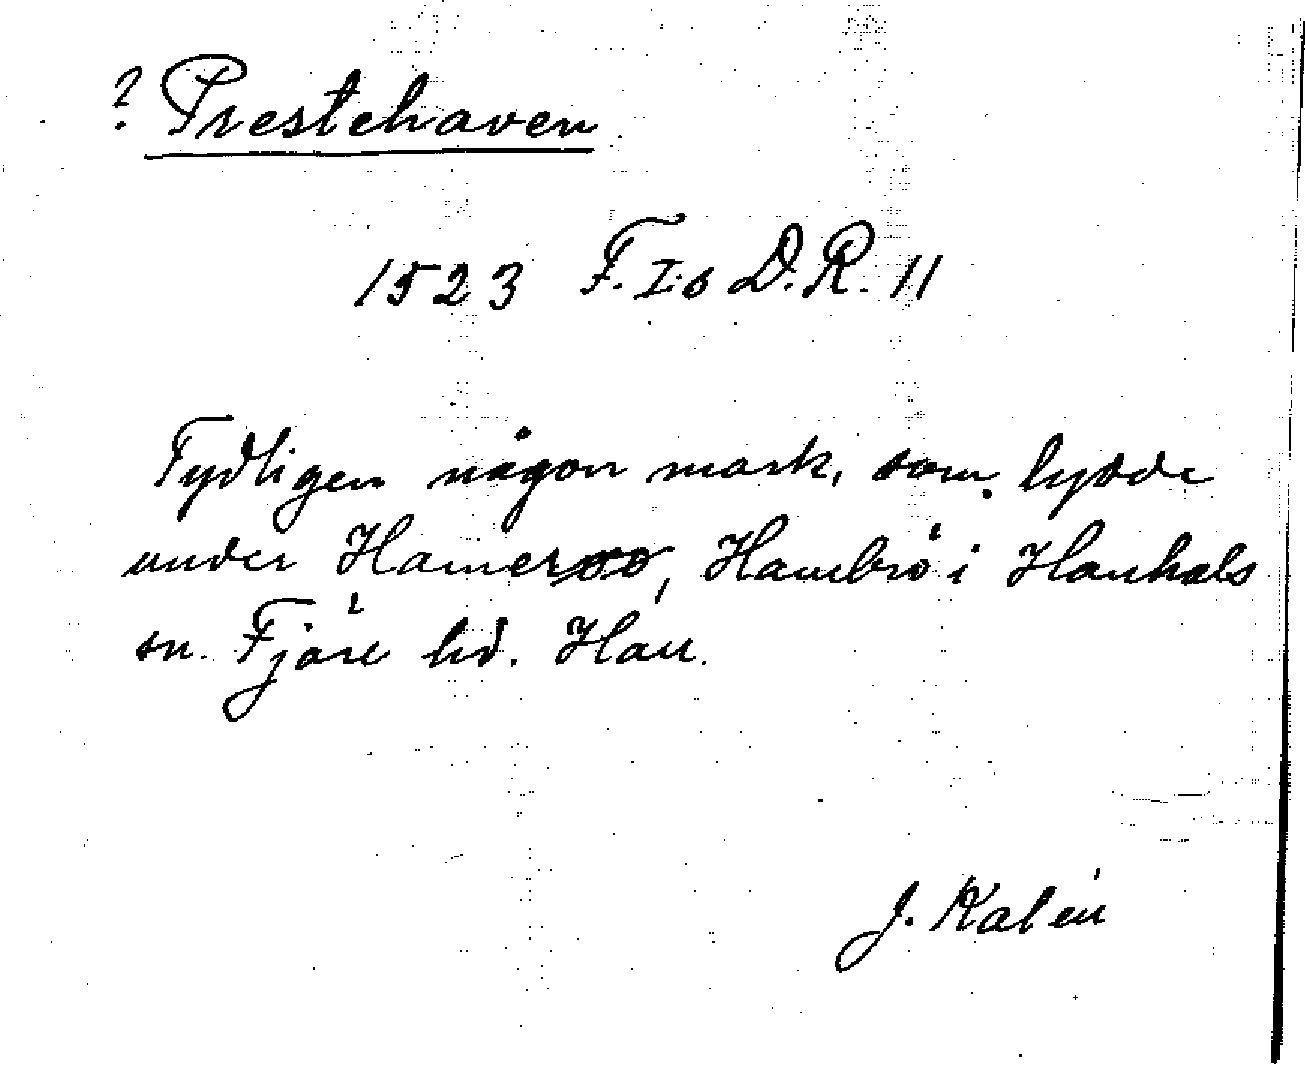 ? Prestehaven
1523 F. I:s D.R. 11
Tydligen någon mark, som lydde
under Hameroo, Hambrö i Hanhals
sn. Fjäre hd. Hall.
J. Kalén